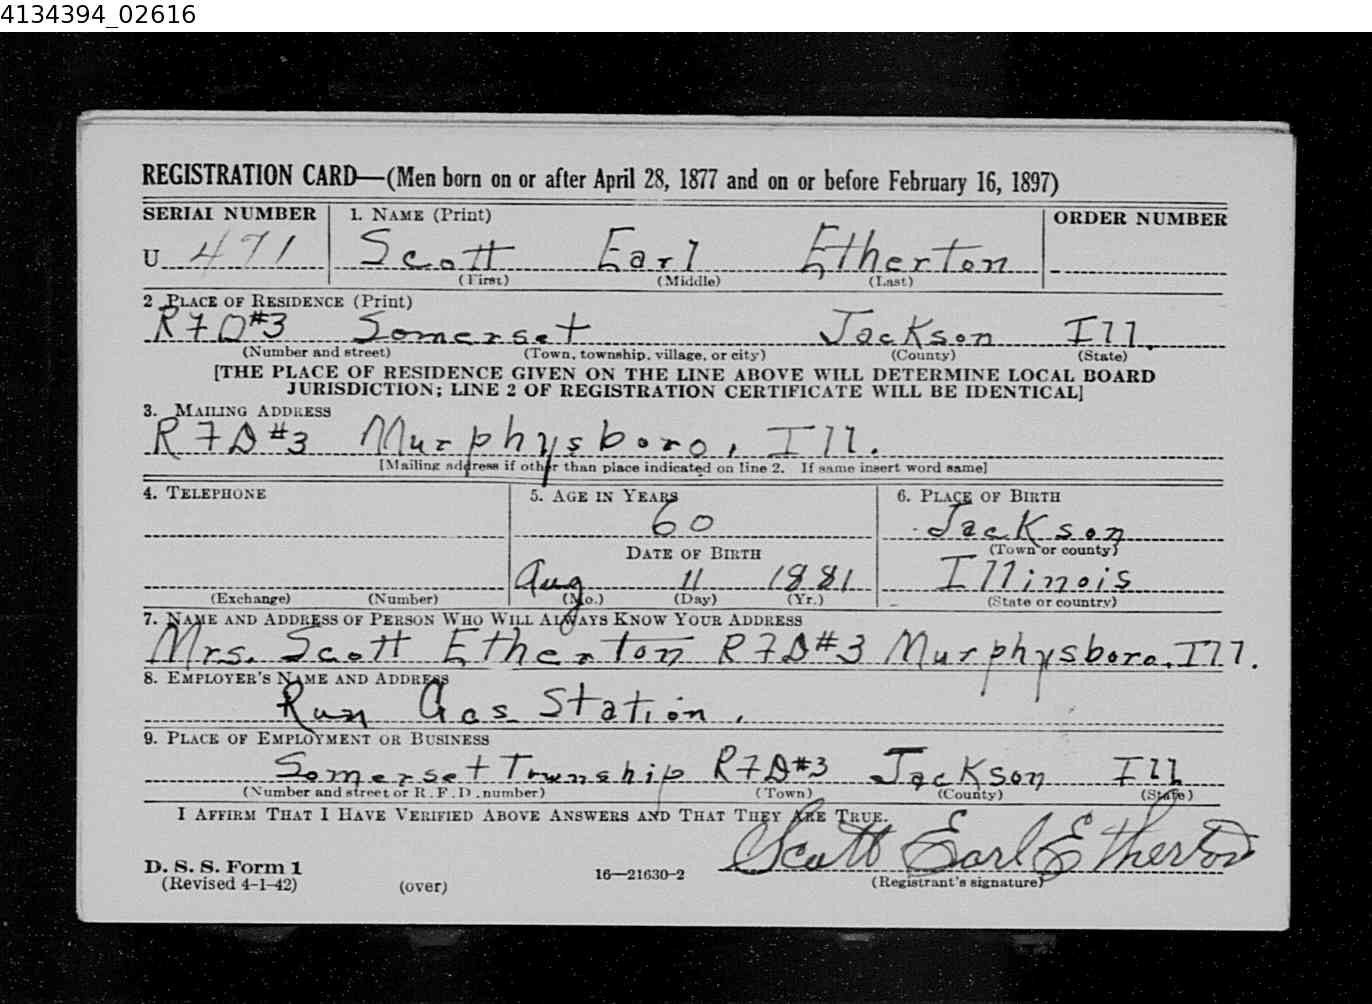 4134394_02616
REGISTRATION CARD—(Men born on or after April 28, 1877 and on or before February 16, 1897)
SERIAL NUMBER 1. NAME (Print) ORDER NUMBER
U 471 Scott Earl Etherton
(First) (Middle) (Last)
2 PLACE OF RESIDENCE (Print)
R7D#3 Somerset Jackson Ill.
(Number and street) (Town, township, village, or city) (County) (State)
[THE PLACE OF RESIDENCE GIVEN ON THE LINE ABOVE WILL DETERMINE LOCAL BOARD
JURISDICTION; LINE 2 OF REGISTRATION CERTIFICATE WILL BE IDENTICAL]
3. MAILING ADDRESS
R7D#3 Murphysboro, Ill.
[Mailing address if other than place indicated on line 2. If same insert word same]
4. TELEPHONE 5. AGE IN YEARS 6. PLACE OF BIRTH
60 Jackson
DATE OF BIRTH (Town or county)
Aug 11 1881 Illinois
(Exchange) (Number) (Mo.) (Day) (Yr.) (State or country)
7. NAME AND ADDRESS OF PERSON WHO WILL ALWAYS KNOW YOUR ADDRESS
Mrs. Scott Etherton R7D#3 Murphysboro, Ill.
8. EMPLOYER'S NAME AND ADDRESS
Run Gas Station.
9. PLACE OF EMPLOYMENT OR BUSINESS
Somerset Township R7D#3 Jackson Ill
(Number and street or R. F. D. number) (Town) (County) (State)
I AFFIRM THAT I HAVE VERIFIED ABOVE ANSWERS AND THAT THEY ARE TRUE.
Scott Earl Etherton
D. S. S. Form 1
(Revised 4-1-42) (over) 16—21630-2 (Registrant's signature)